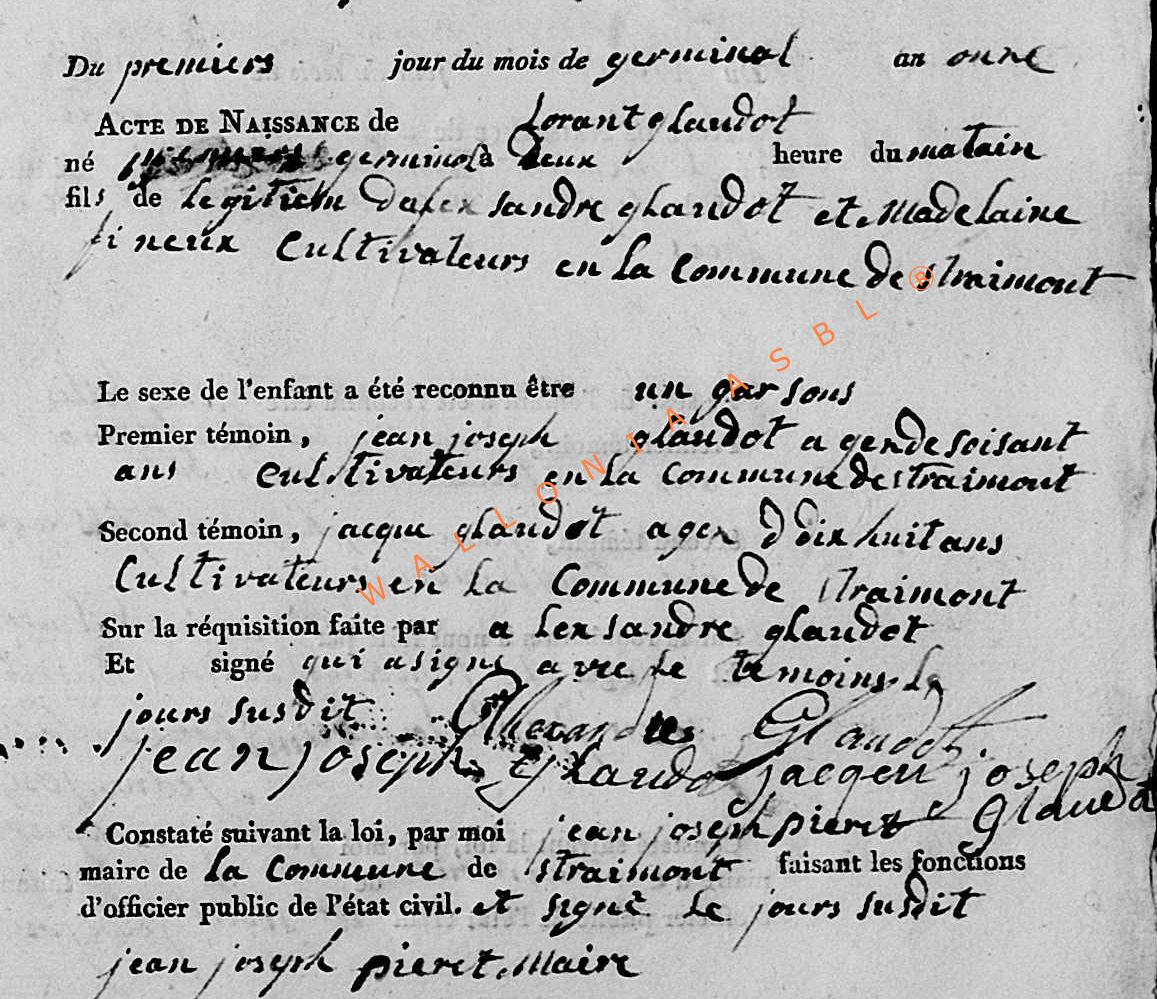 Du premiers jour du mois de germinal an onne
ACTE DE NAISSANCE de Lorant glaudot
né germinal à deux heure du matain
fils de Legitiem dalexsandre glaudot et Madelaine
fineux Cultivateurs en la Commune de straimont
Le sexe de l'enfant a été reconnu être un garsons
Premier témoin, jean joseph glaudot agende soisant
ans Cultivateurs en la Commune de straimont
Second témoin, jacque glaudot agex D dix huit ans
Cultivateurs en la Commune de straimont
Sur la réquisition faite par alexsandre glaudot
Et signé qui a signé avec le temoins le
jours susdit Glaudot
jean joseph Glaudot jacqeu joseph
Glaudot
Constaté suivant la loi, par moi jean joseph pieret
maire de la Commune de straimont faisant les fonctions
d'officier public de l'état civil. et signé le jours susdit
jean joseph pieret Maire
WALLONIA ASBL ®